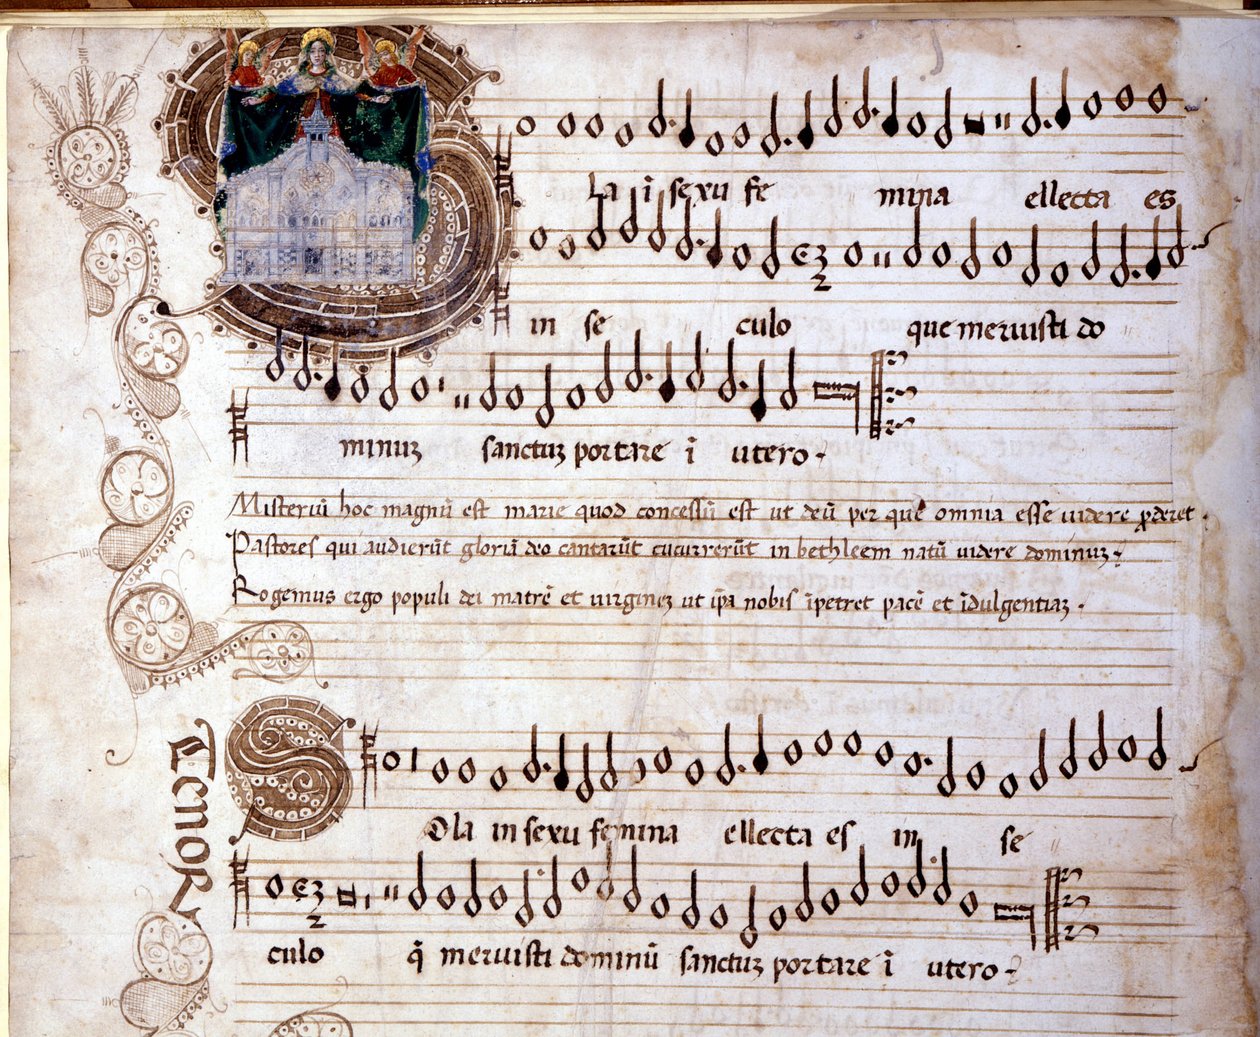 La ī sexu fē mina ellecta es
in se culo que meruisti do
minuz sanctuz portare ī utero.
Misteriū hoc magnū est marie quod concessū est ut deū per quē omnia esse uidere ꝓderet.
Pastores qui audierūt gloriā deo cantarūt cucurrerūt in bethleem natū uidere dominuz.
Rogemus ergo populi dei matrē et uirginez ut ip̄a nobis īpetret pacē et īdulgentiaz.
Tenor
Sola in sexu femina ellecta es in se
culo q̄ meruisti dominū sanctuz portare ī utero.